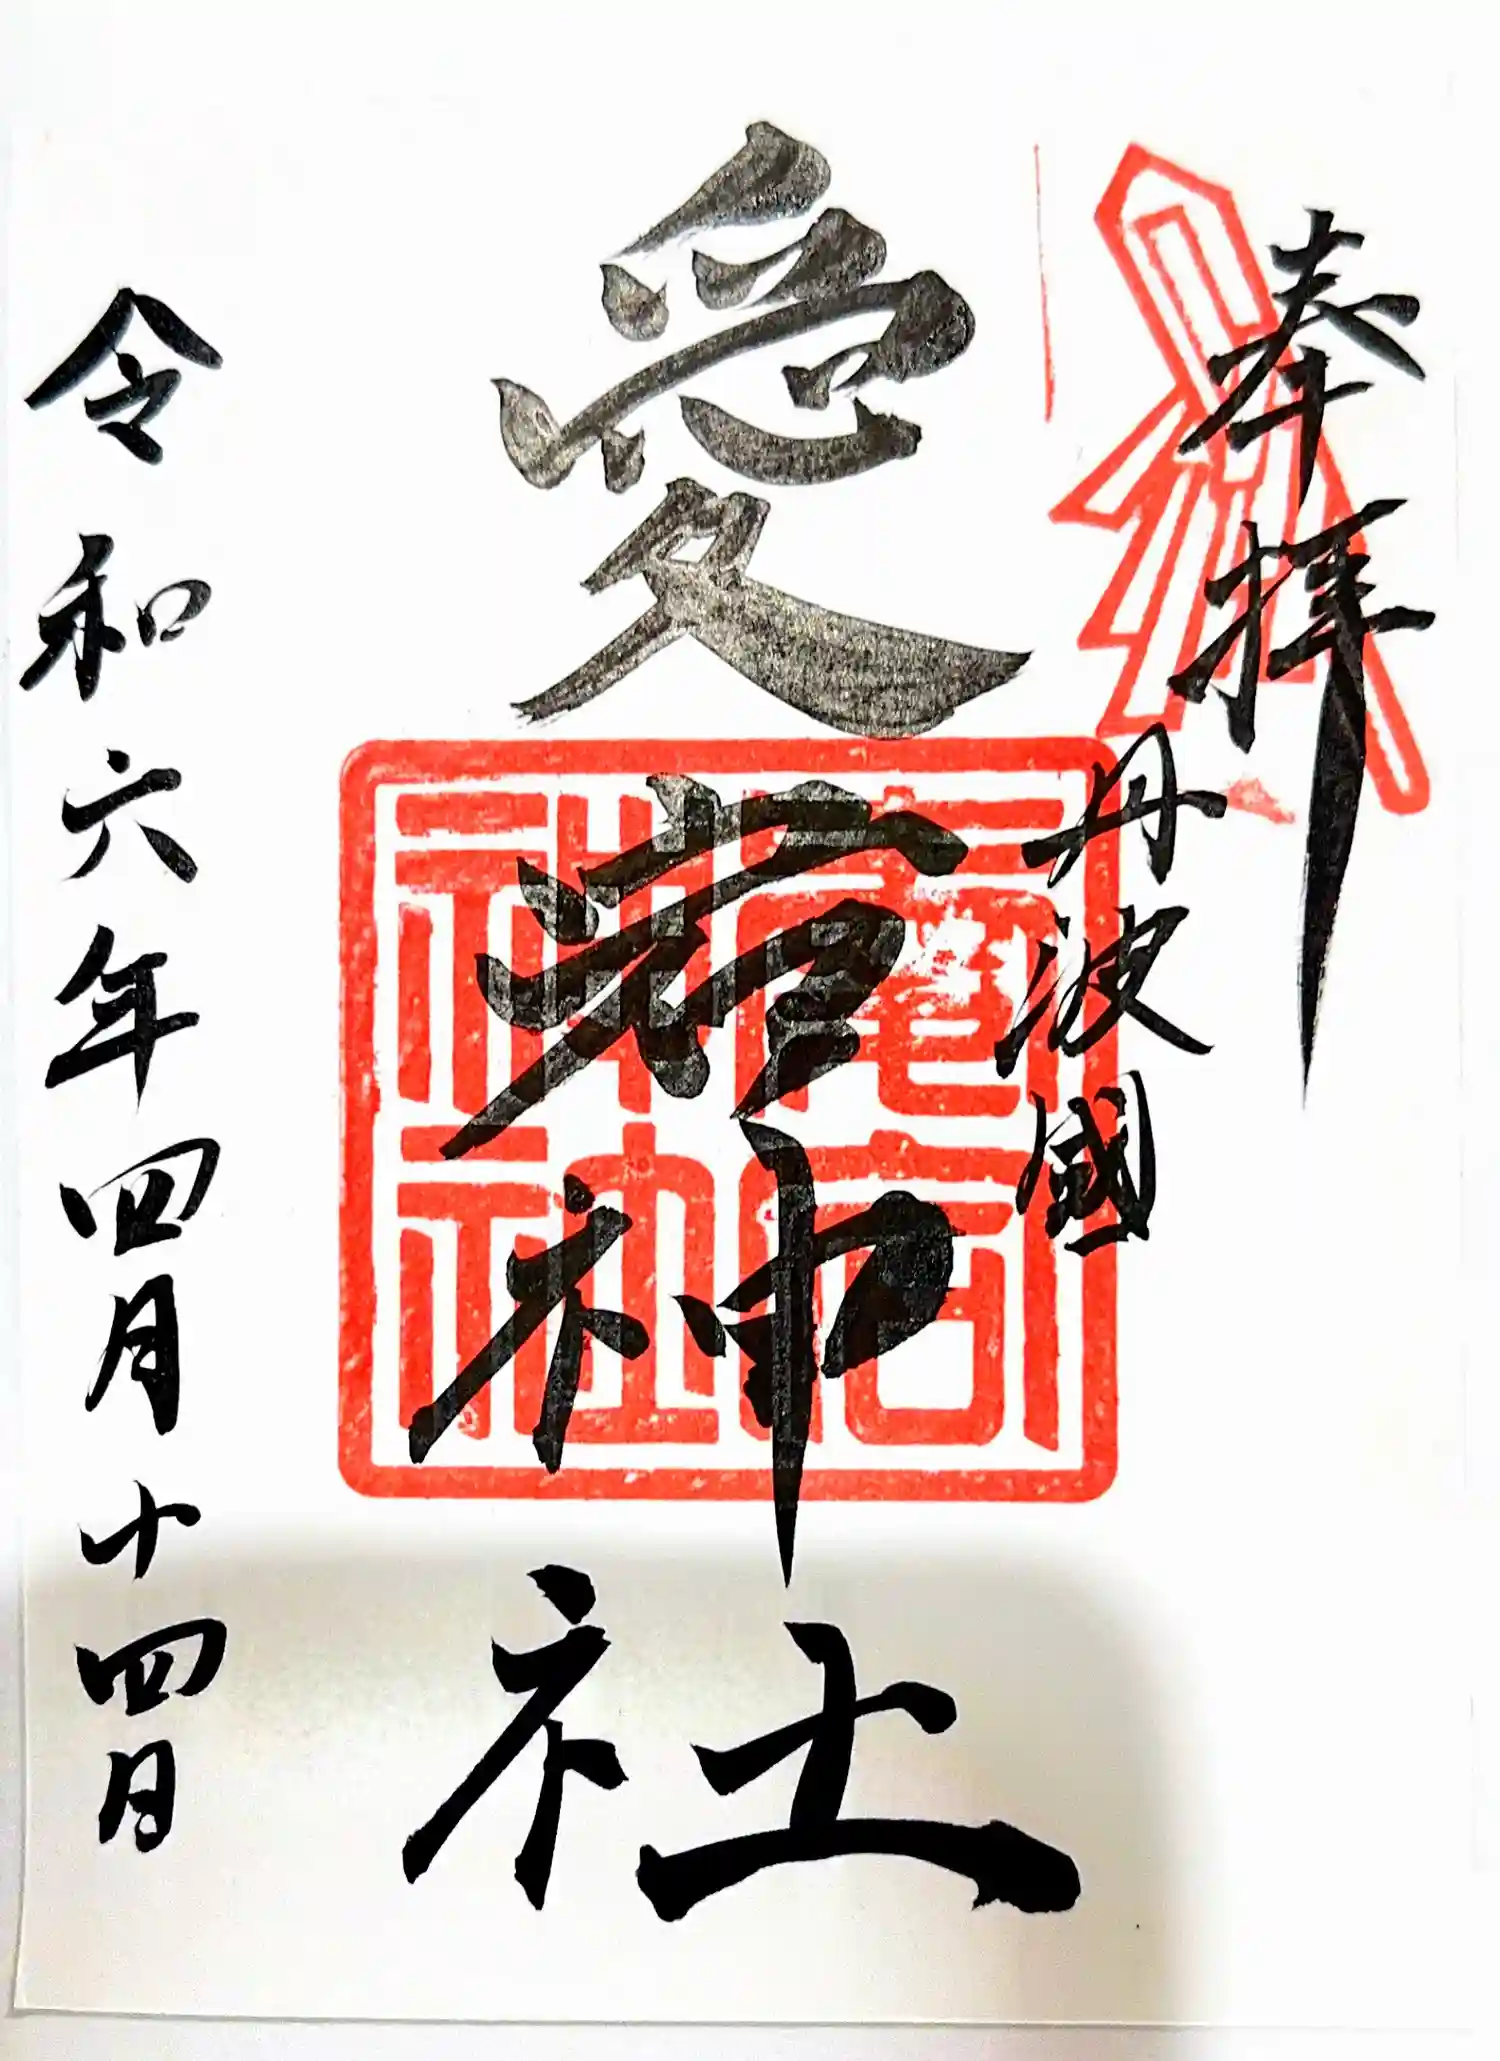 奉拝
丹波國
愛宕神社
愛宕
神社
令和六年四月十四日